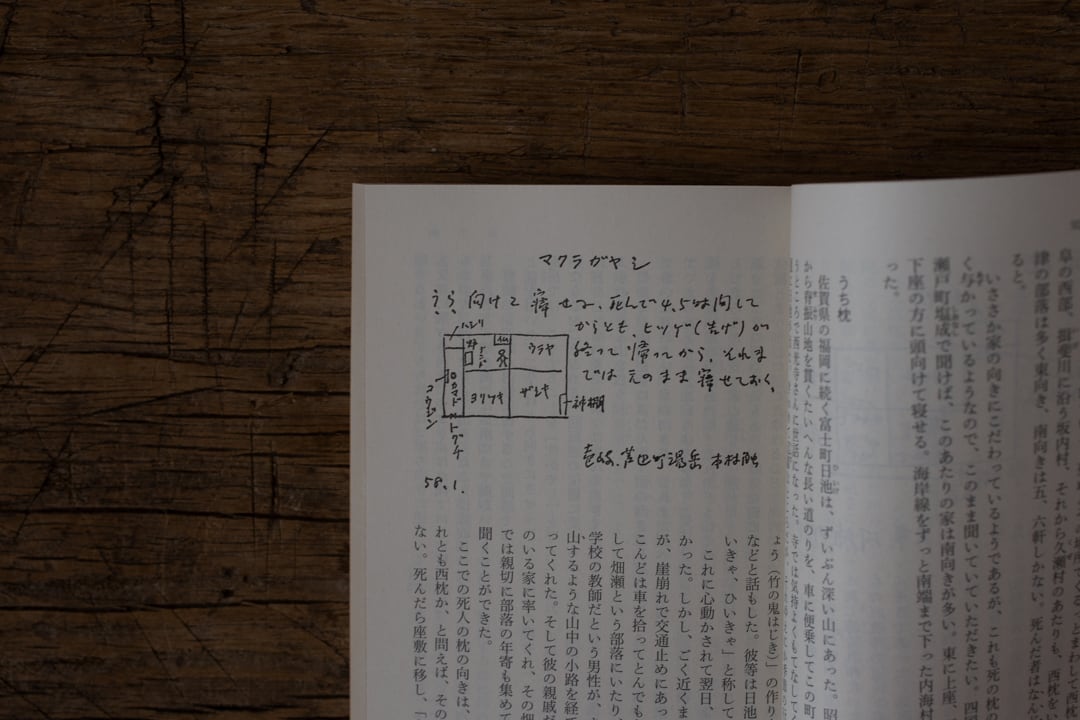 マクラガヤシ
うら向けて寝せる、死んで4,5時間して
からとも、ヒツゲ(告げ)が
終って帰ってから、それま
では元のまま寝せておく。
ハシリ
ウラヤ
ヨリツキ
ザシキ
カマド
トグチ
コウジン
神棚
壱岐、芦辺町湯岳
58.1.
ょう（竹の鬼はじき）」の作り
などと話もした。彼等は日池
いきゃ、ひいきゃ」と称して
これに心動かされて翌日、
かった。しかし、ごく近くま
が、崖崩れで交通止めにあっ
こんどは車を拾ってとんでも
して畑瀬という部落にいたり、
学校の教師だという男性が、
山するような山中の小路を経て
ってくれた。そして彼の親戚
のいる家に率いてくれ、その
では親切に部落の年寄も集めて
聞くことができた。
ここでの死人の枕の向きは、
れとも西枕か、と問えば、その
ない。死んだら座敷に移し、「
阜の西部、揖斐川に沿う坂内村、それから久瀬村のあたりも、西枕を
津の部落は多く東向き、南向きは五、六軒しかない。死んだ者はな
ると。
いささか家の向きにこだわっているようであるが、これも死の枕
く与かっているようなので、このまま聞いていていただきたい。四
瀬戸町塩成で聞けば、このあたりの家は南向きが多い。東に上座、
下座の方に頭向けて寝せる。海岸線をずっと南端まで下った内海村
った。
うち枕
佐賀県の福岡に続く富士町日池は、ずいぶん深い山にあった。昭
から脊振山地を貫くたいへんな長い道のりを、車に便乗してこの町